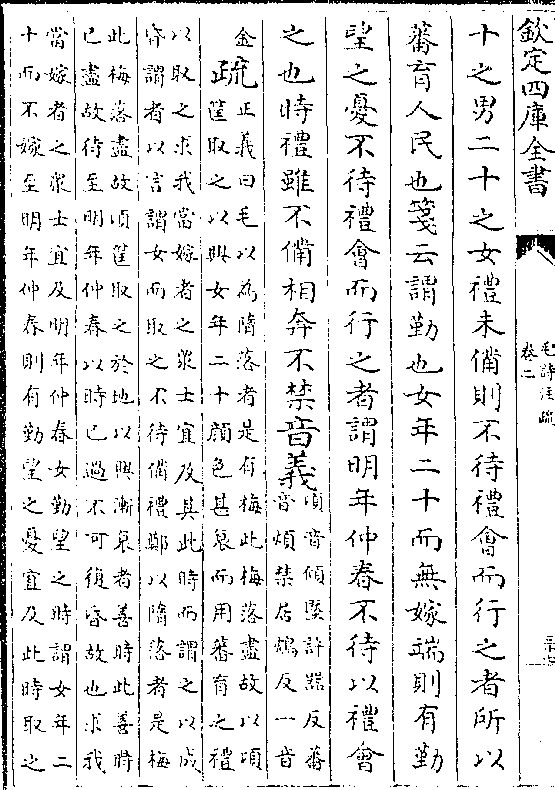 欽定四庫全書
毛詩注疏
卷二
十之男二十之女禮未備則不待禮會而行之者所以
蕃育人民也箋云謂勤也女年二十而無嫁端則有勤
望之憂不待禮會而行之者謂明年仲春不待以禮會
之也時禮雖不備相奔不禁音義
頃音傾墍許器反蕃
音煩禁居鴆反一音
金
疏
正義曰毛以為隋落者是有梅此梅落盡故以頃
筐取之以興女年二十顏色甚衰而用蕃育之禮
以取之求我當嫁者之衆士宜及其此時而謂之以成
昏謂者以言謂女而取之不待備禮鄭以隋落者是梅
此梅落盡故頃筐取之於地以興漸衰者善時此善時
已盡故待至明年仲春以時已過不可復昏故也求我
當嫁者之衆士宜及明年仲春女勤望之時謂女年二
十而不嫁至明年仲春則有勤望之憂宜及此時取之